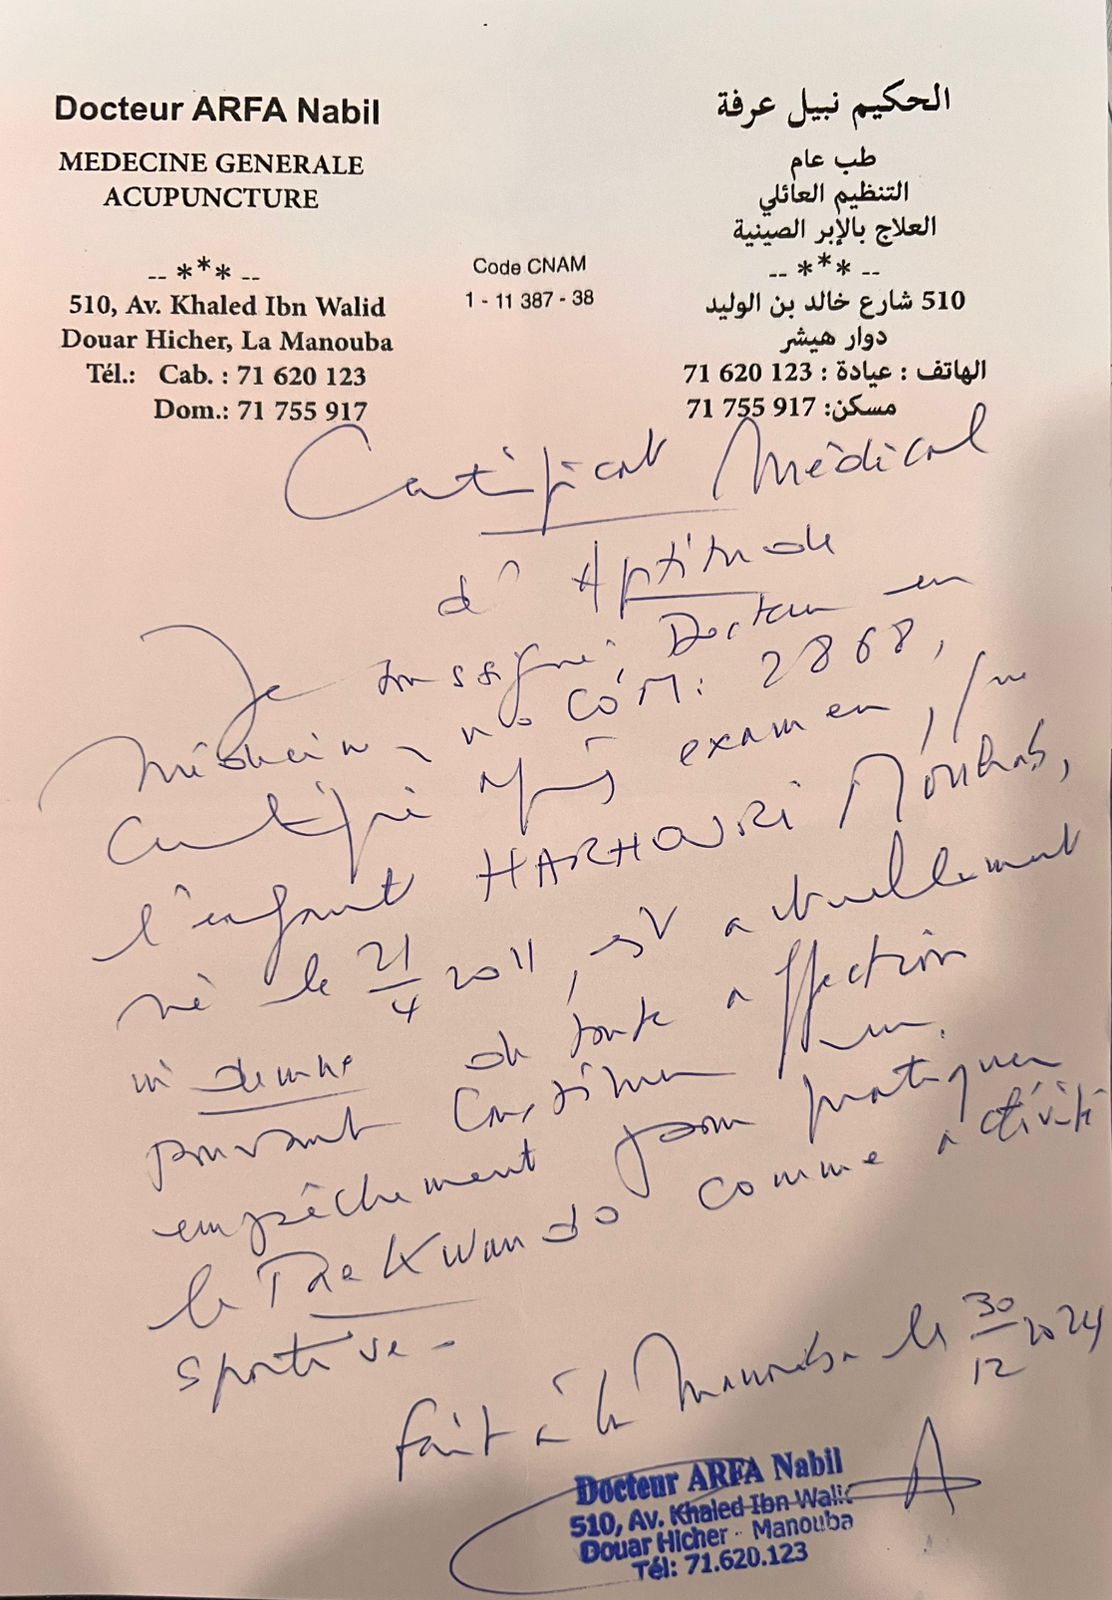 Docteur ARFA Nabil
MEDECINE GENERALE
ACUPUNCTURE
-- *** --
510, Av. Khaled Ibn Walid
Douar Hicher, La Manouba
Tél.: Cab. : 71 620 123
Dom.: 71 755 917
Code CNAM
1 - 11 387 - 38
الحكيم نبيل عرفة
طب عام
التنظيم العائلي
العلاج بالإبر الصينية
-- *** --
510 شارع خالد بن الوليد
دوار هيشر
الهاتف : عيادة : 123 620 71
مسكن: 917 755 71
Certificat Médical
d'Aptitude
Je soussigné, Docteur en
Médecine, no COM: 2868,
Certifie après examen, que
l'enfant HARHOURI
né le 21/4 2011, est actuellement
indemne de toute affection
pouvant Constituer un
empêchement pour pratiquer
le TaeKwando comme activité
sportive.
fait à la Manouba le 30/12 2024
Docteur ARFA Nabil
510, Av. Khaled Ibn Walid
Douar Hicher - Manouba
Tél: 71.620.123